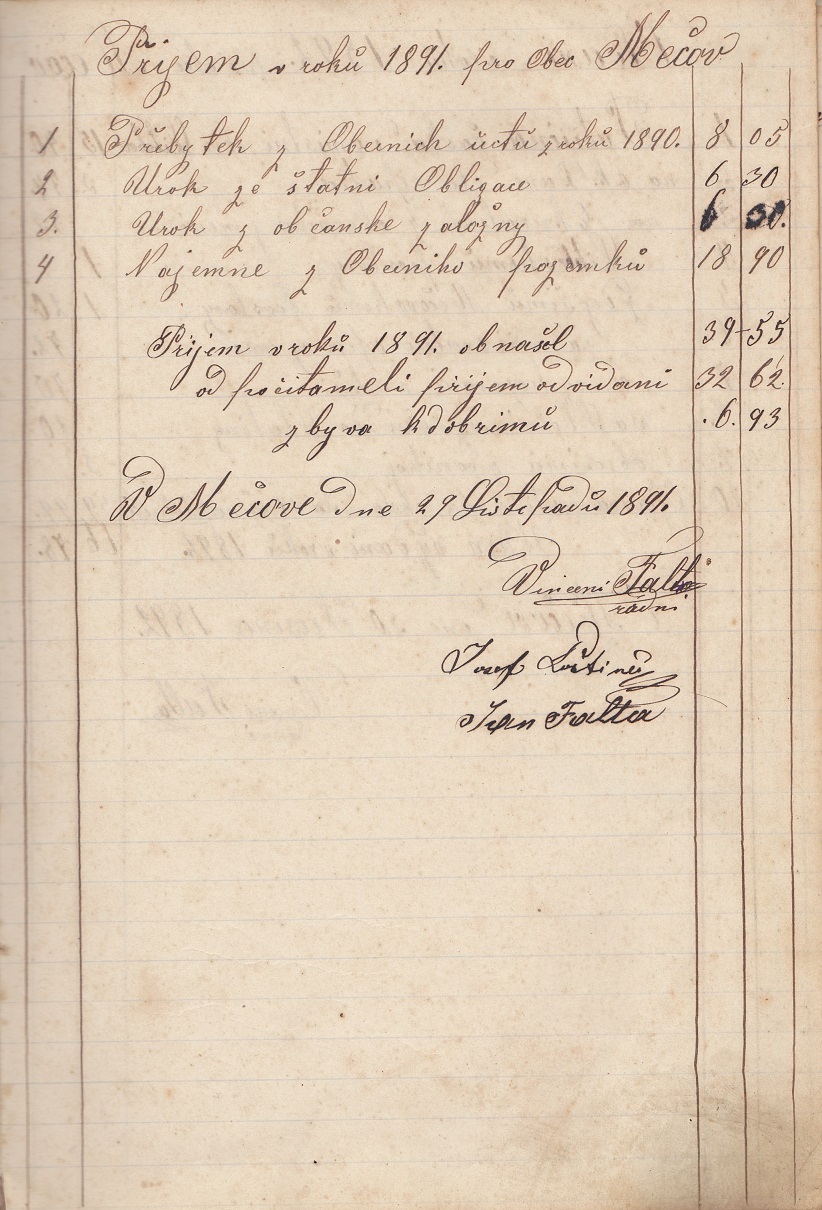 Přijem v roků 1891. pro Obec Mečov
1 Přebytek z Obecnich üctů z roků 1890. 8 05
2 Urok ze štatni Obligace 6 30
3. Urok z občanske založny 6 30.
4 Najemne z Obecniho pozemků 18 90
Přijem v roků 1891. obnašel 39-55
od počitameli přijem od vidani 32 62.
zbyva k dobrimů .6. 93
V Mečove dne 29 Listopadů 1891.
Vincenc Falta
radni
Josef
Jan Falta